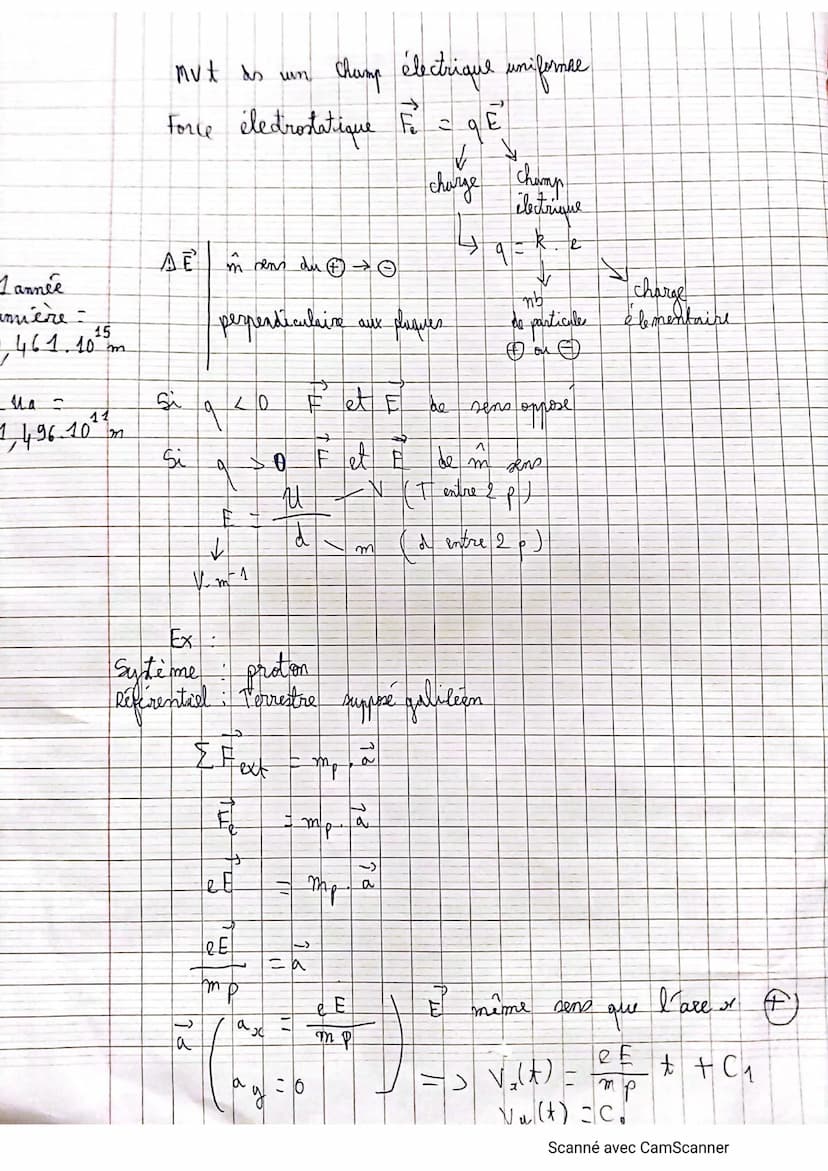 mvt ds un champ électrique uniforme
Force électrostatique F⃗e = qE⃗
↓ ↘
charge champ électrique
↳ q = k . e
↓ ↘
nb de particule ⊕ ou ⊖
charge élementaire
ΔE⃗ | m̂ sens du ⊕ → ⊖
perpendiculaire aux plaques
1 année
lumière =
,461.10¹⁵ m
ua =
1,496.10¹¹ m
Si q < 0 F⃗ et E⃗ de sens opposé
Si q > 0 F⃗ et E⃗ de m̂ sens
E = U/d
U — V (T entre 2 p)
d \ m (d entre 2 p)
↓
V.m⁻¹
Ex :
Sytème : proton
Référentiel : Terrestre supposé galiléen
Σ F⃗ext = mp . a⃗
F⃗e = mp . a⃗
eE⃗ = mp . a⃗
eE⃗/mp = a⃗
E⃗ même sens que l'axe x ⊕
a⃗ ( ax = eE/mp
ay = 0 )
=> Vx(t) = eE/mp t + C1
Vy(t) = C
Scanné avec CamScanner